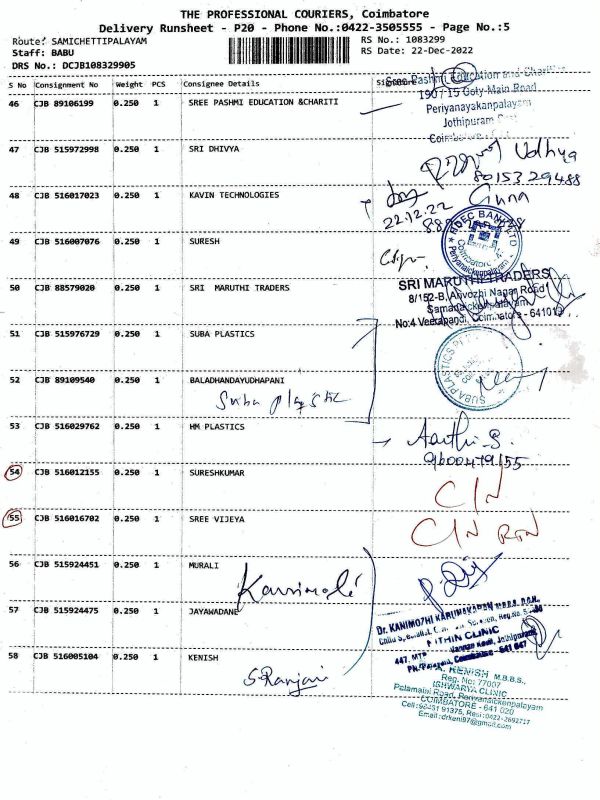 THE PROFESSIONAL COURIERS, Coimbatore
Delivery Runsheet - P20 - Phone No.:0422-3505555 - Page No.:5
Route: SAMICHETTIPALAYAM RS No.: 1083299
Staff: BABU RS Date: 22-Dec-2022
DRS No.: DCJB108329905
S No Consignment No Weight PCS Consignee Details
Sree Pashmi Education and Charities
46 CJB 89106199 0.250 1 SREE PASHMI EDUCATION &CHARITI
Main Road
Periyanayakanpalayam
Jothipuram
47 CJB 515972998 0.250 1 SRI DHIVYA
Udhya
8015329488
48 CJB 516017023 0.250 1 KAVIN TECHNOLOGIES
22.12.22
HDFC BANK LTD
Coimbatore
Periyanaickenpalayam
49 CJB 516007076 0.250 1 SURESH
50 CJB 88579020 0.250 1 SRI MARUTHI TRADERS
SRI MARUTHI TRADERS
8/152-B, Arivozhi Nagar Road
Samanaickenpalayam
No:4 Veerapandi, Coimbatore - 641019
51 CJB 515976729 0.250 1 SUBA PLASTICS
SUBA PLASTICS
52 CJB 89109540 0.250 1 BALADHANDAYUDHAPANI
Suba plastic
53 CJB 516029762 0.250 1 HM PLASTICS
Aarthi-S.
9600479155
54 CJB 516012155 0.250 1 SURESHKUMAR
C/N
55 CJB 516016702 0.250 1 SREE VIJEYA
C/N RTN
56 CJB 515924451 0.250 1 MURALI
57 CJB 515924475 0.250 1 JAYAWADANE
Dr. KANIMOZHI KARUNAKARAN M.B.B.S., D.C.H.,
NITHIN CLINIC
58 CJB 516005104 0.250 1 KENISH
S.Ranjani
KENISH M.B.B.S.,
Reg. No: 77007
ISHWARYA CLINIC
Periyanaickenpalayam
COIMBATORE - 641 020
Cell:98431 91375, Resi:0422-2692717
Email:drkeni97@gmail.com